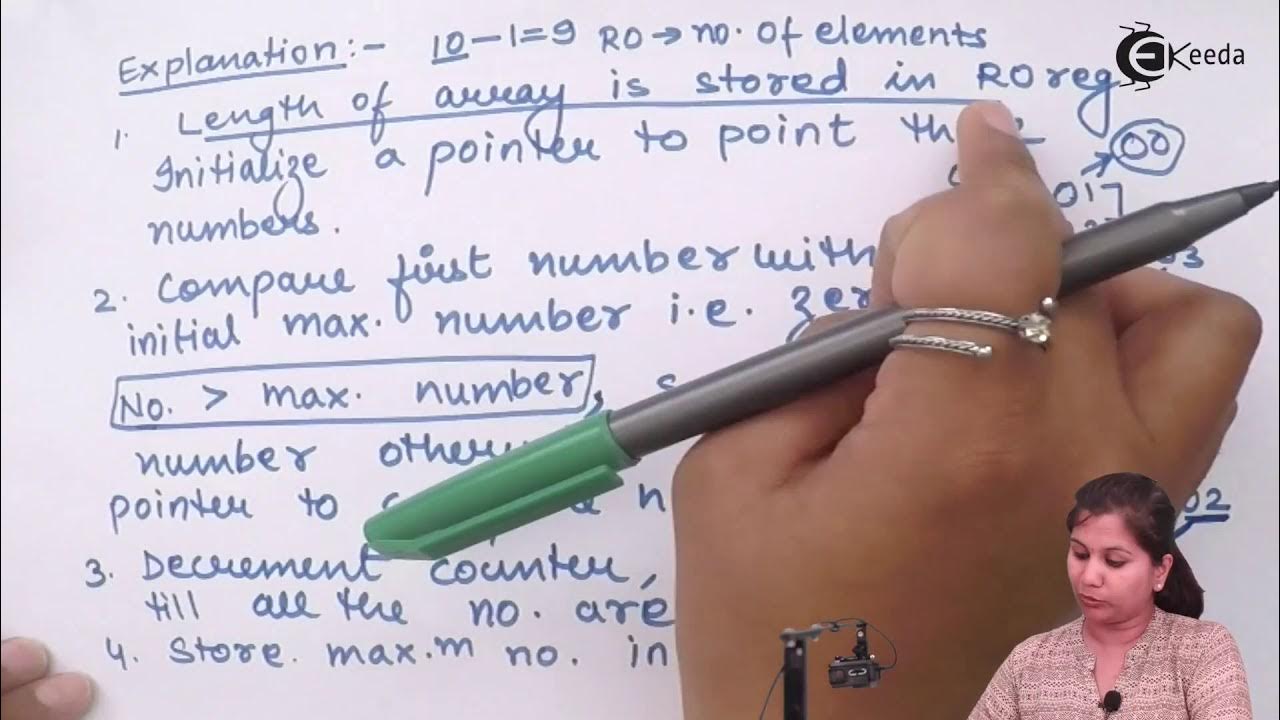 Explanation:- 10-1=9 R0→no. of elements
1. Length of array is stored in R0 reg
Initialize a pointer to point
00
numbers.
017
2. Compare first number with
03
initial max. number i.e.
No. > max. number,
number
pointer to
02
3. Decrement counter,
till all the no. are
4. Store. max.m no. in
EKeeda